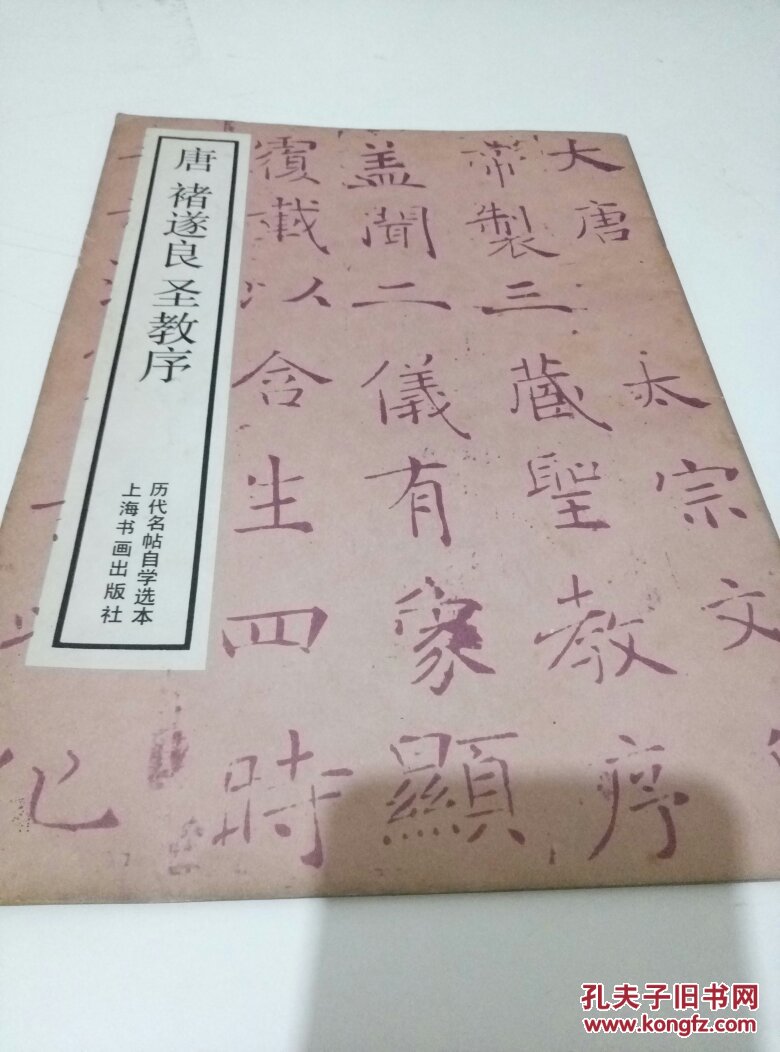 唐 褚遂良 圣教序
历代名帖自学选本
上海书画出版社
大唐太宗文
帝製三藏聖教序
盖聞二儀有象顯
覆載以含生四時
化
孔夫子旧书网
www.kongfz.com